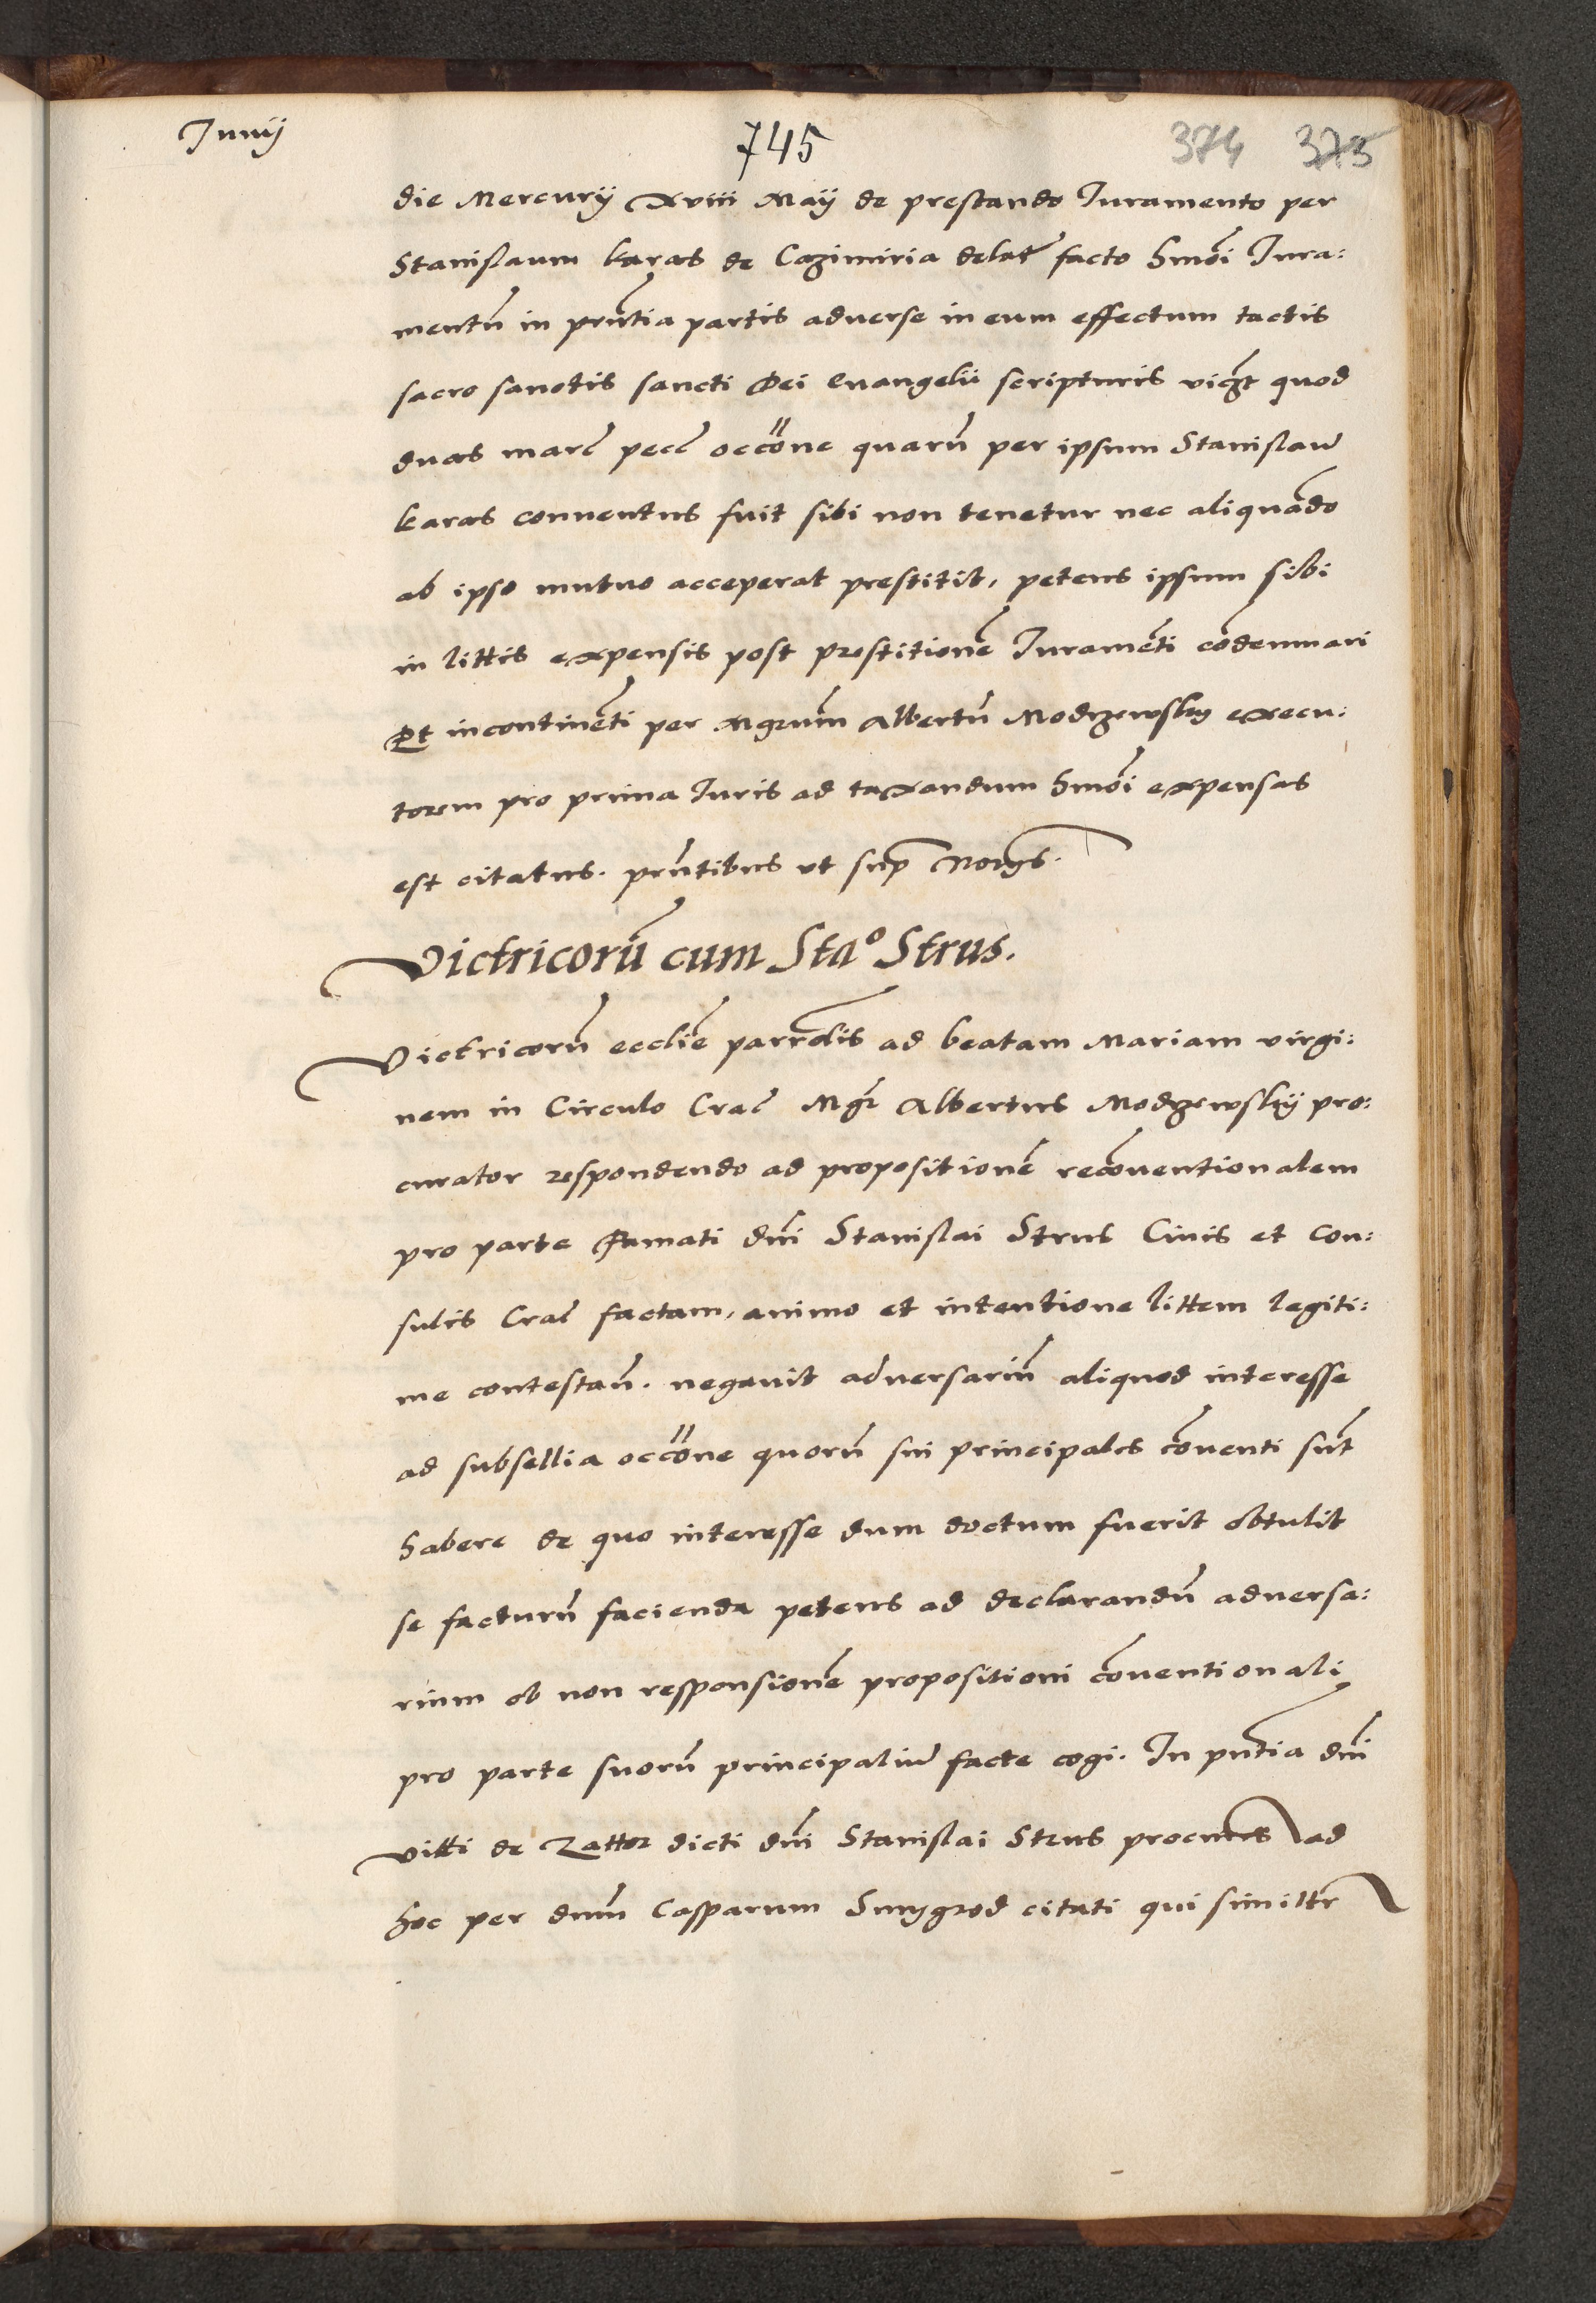 Junij
745
374 375
die Mercurij xviii Maij de prestando Iuramento per
Stanislaum karas de Cazimiria delat̃ facto hmõi Iura:
mentũ in prñtia partis adverse in eum effectum tactis
sacro sanctis sancti Dei Evangelii scripturis quod
duas marc̃ pec̃ occõne quarũ per ipsum Stanislaũ
karas conventus fuit sibi non tenetur nec aliquãdo
ab ipso mutuo acceperat prestitit, petens ipsum sibi
in littis expensis post prestitionẽ Iuramẽti cõdemnari
Et incontinẽti per Mgrum̃ Albertũ Modrzewsky execu:
torem pro prima Iuris ad taxandum hmõi expensas
est citatus. prñtibus ut supͣ Norijs.
Victricorũ cum Sta° Strus.
Victricorũ ecclie̅ parrolis̃ ad beatam Mariam virgi:
nem in Circulo Crac̃ Mgr̃ Albertus Modrzewsky pro:
curator respondendo ad propositionẽ recõventionalem
pro parte Famati dñi Stanislai Strus Civis et Con:
sulis Crac̃ factam, animo et intentione littem legiti:
me contestañ. negavit adversariũ aliquod interesse
ad subsellia occõne quorũ sui principales cõventi sũt
habere de quo interesse dum doctum fuerit obtulit
se facturũ facienda petens ad declarandũ adversa:
rium ob non responsionẽ propositioni cõventionali
pro parte suorũ principaliũ facte cogi. In pñtia dñi
Vitti de Zattor dicti dñi Stanislai Strus procuris ad
hoc per dnum̃ Casparum Smygrod citati qui similtr̃